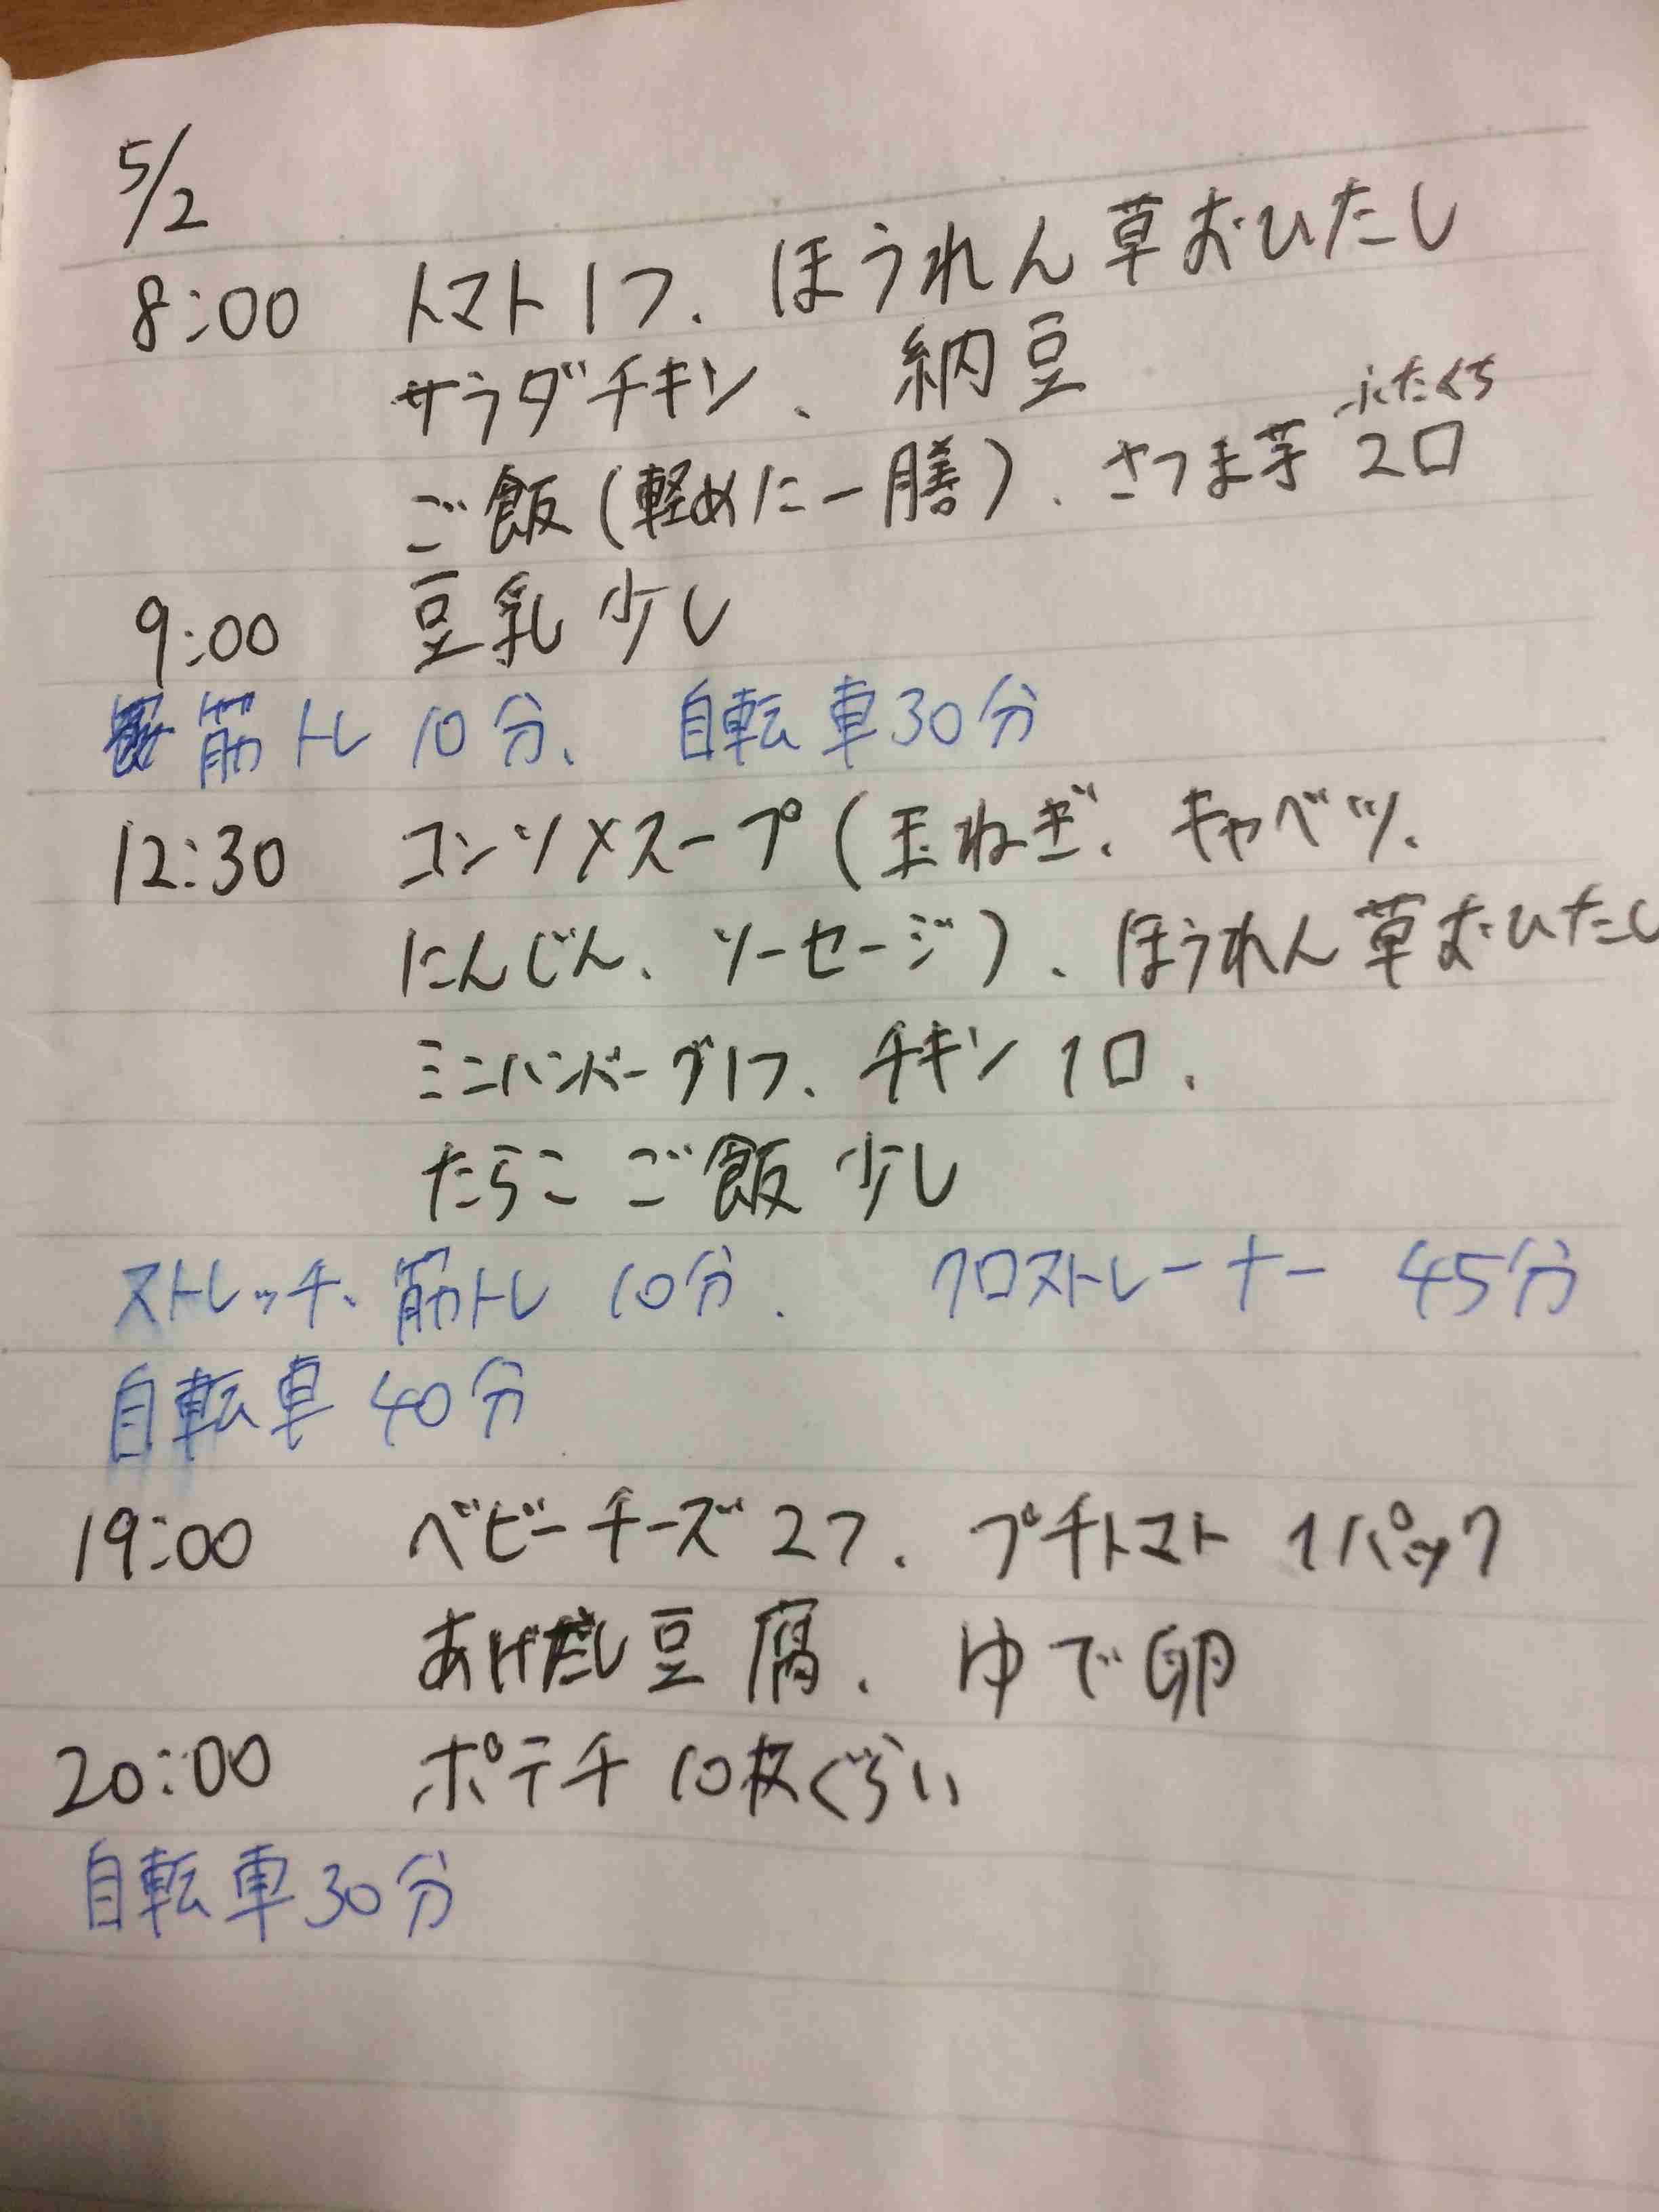 5/2
8:00 トマト1つ、ほうれん草おひたし
サラダチキン、納豆
ふたくち
ご飯(軽めに一膳)、さつま芋2口
9:00 豆乳少し
筋トレ10分、自転車30分
12:30 コンソメスープ(玉ねぎ、キャベツ、
にんじん、ソーセージ)、ほうれん草おひたし
ミニハンバーグ1つ、チキン1口、
たらこご飯少し
ストレッチ、筋トレ10分、クロストレーナー45分
自転車40分
19:00 ベビーチーズ2つ、プチトマト1パック
あげだし豆腐、ゆで卵
20:00 ポテチ10枚ぐらい
自転車30分